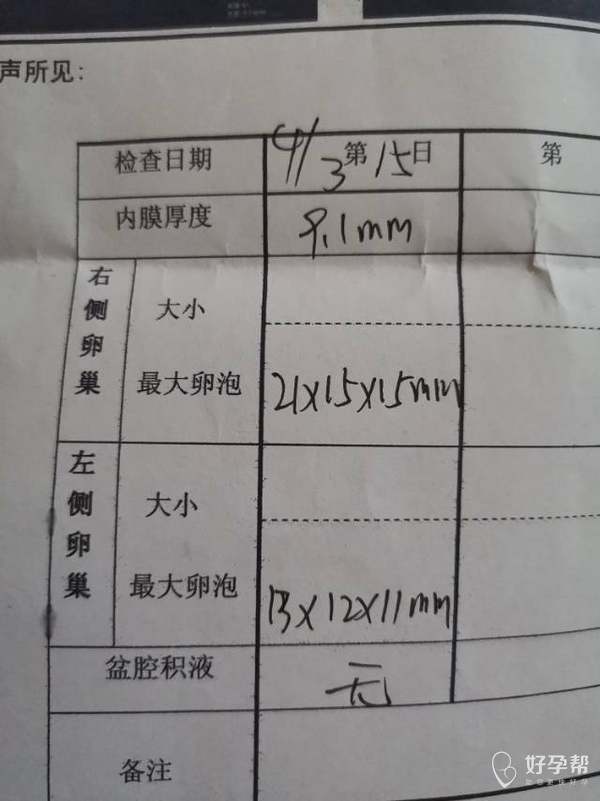 声所见：
检查日期 4/3 第15日 第
内膜厚度 9.1mm
右侧卵巢 大小
最大卵泡 21×15×15mm
左侧卵巢 大小
最大卵泡 13×12×11mm
盆腔积液 无
备注
好孕帮